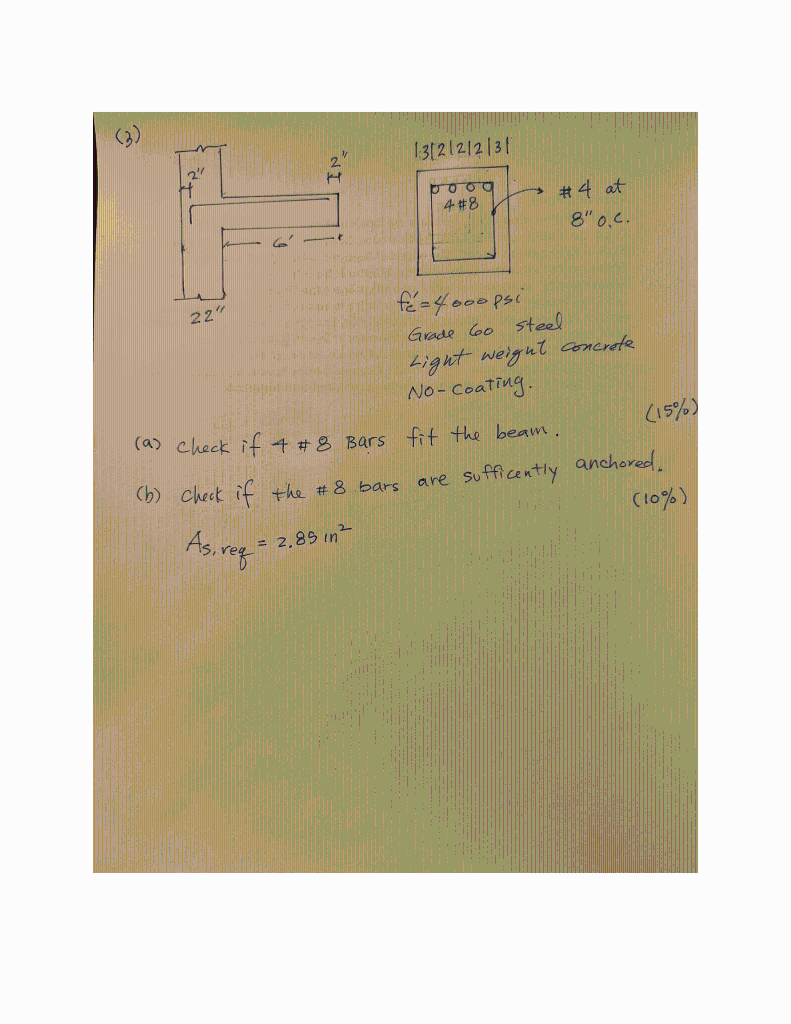 (3)
|3|2|2|2|3|
2"
2"
4#8
#4 at
8" o.c.
6'
22"
fc' = 4000 psi
Grade 60 steel
Light weight concrete
No-coating.
(15%)
(a) check if 4 #8 Bars fit the beam.
(b) check if the #8 bars are sufficently anchored.
(10%)
As,req = 2.85 in²